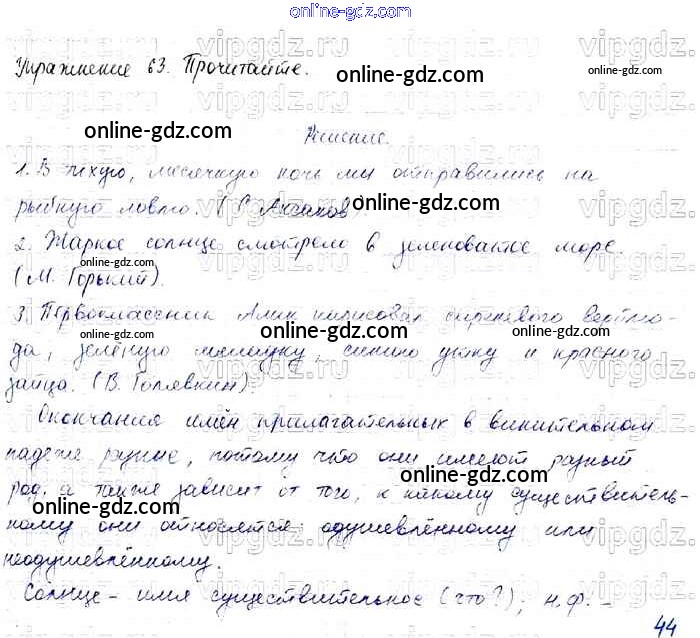 online-gdz.com
Упражнение 63. Прочитайте.
online-gdz.com
online-gdz.com
Решение.
1. В тихую, месячную ночь мы отправились на
рыбную ловлю. (С. Аксаков).
online-gdz.com
2. Жаркое солнце смотрело в зеленоватое море
(М. Горький).
online-gdz.com
3. Первоклассник Алик нарисовал сиреневого верблю-
online-gdz.com
да, зелёную лягушку, синюю утку и красного
зайца. (В. Голявкин).
online-gdz.com
Окончания имён прилагательных в винительном
падеже разные, потому что они имеют разный
online-gdz.com
род, а также зависит от того, к какому существитель-
online-gdz.com
ному они относятся: одушевлённому или
неодушевлённому.
online-gdz.com
Солнце - имя существительное (что?), н.ф. -
44